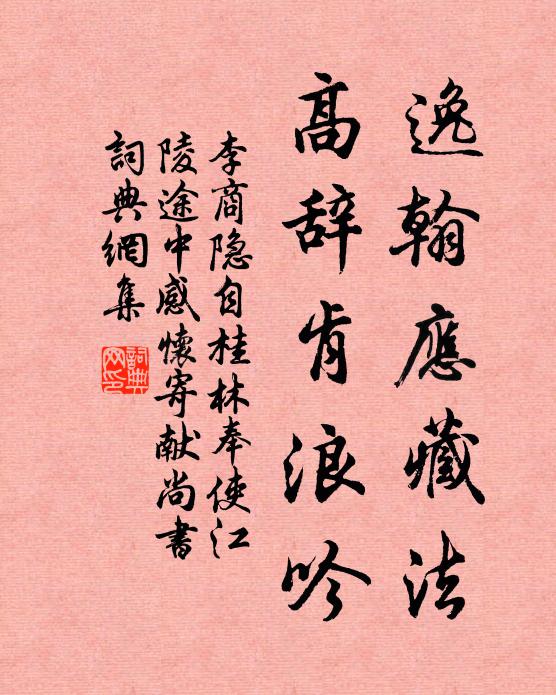 逸翰應藏法
高辞肯浪吟
李商隐自桂林奉使江
陵途中感懷寄献尚書
詞典網集
詞典
网印